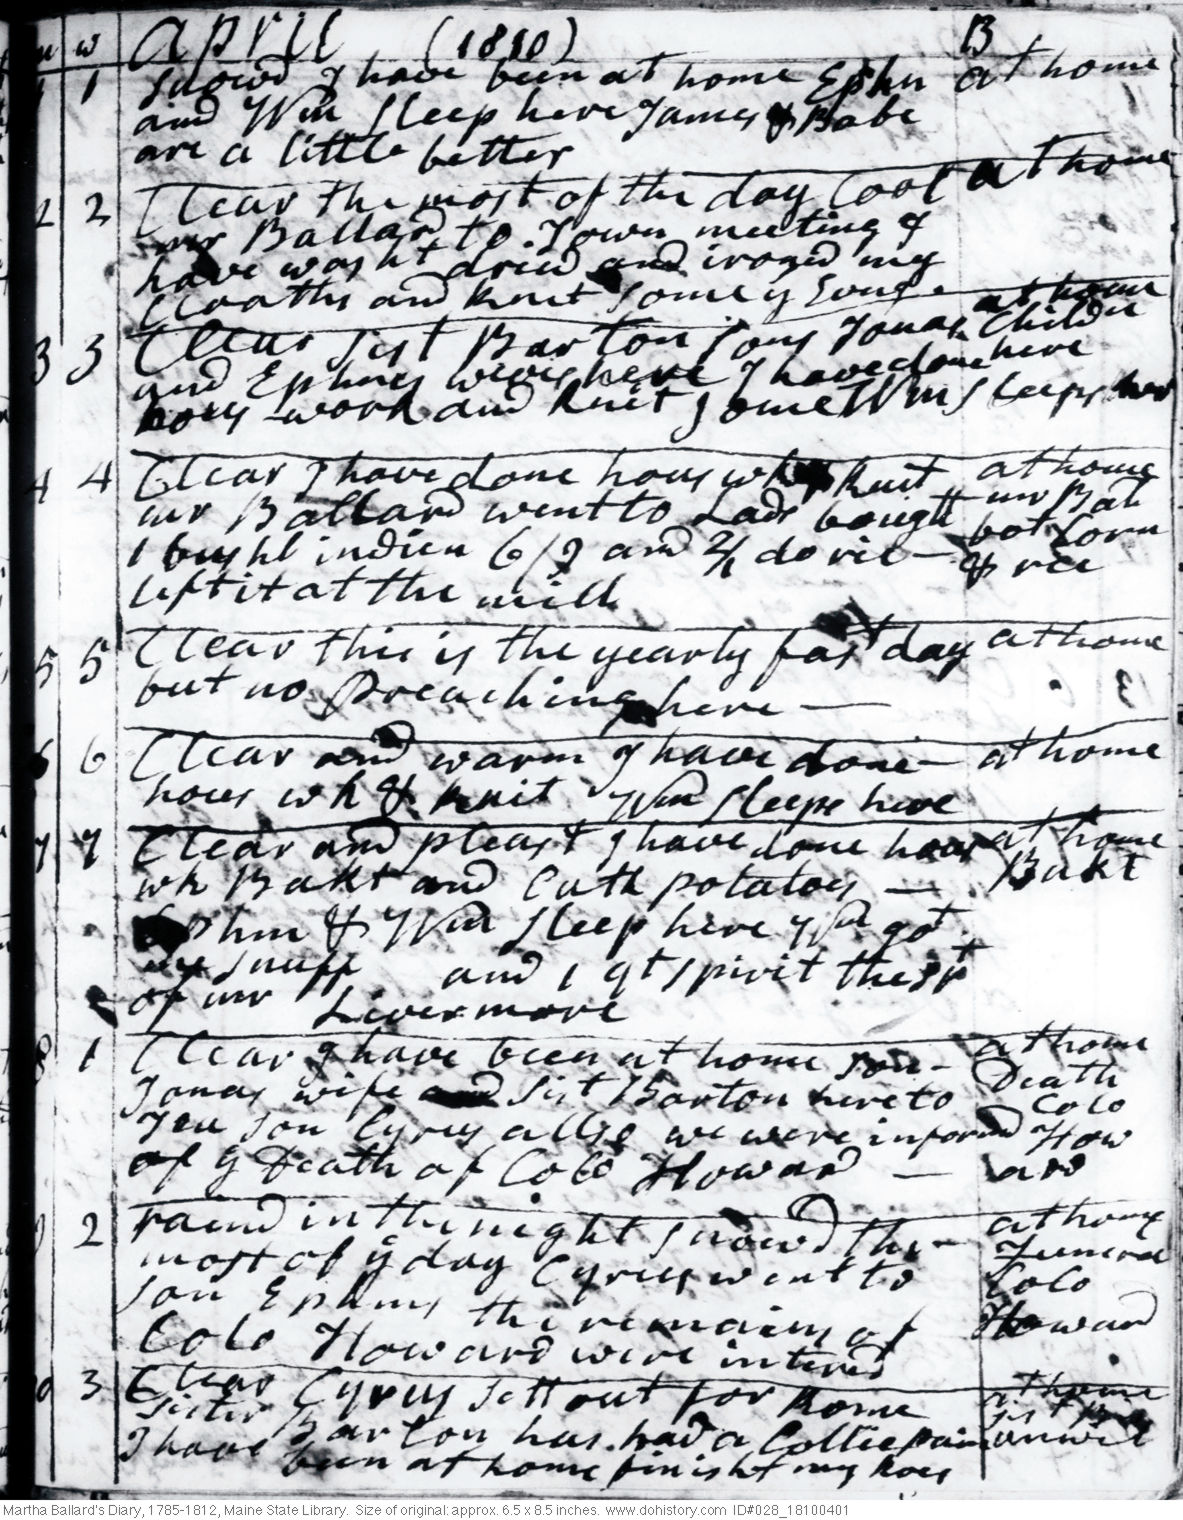 m w April (1810) B
1 1 Snowd I have been at home Ephm at home
and Wm Sleep here James & Babe
are a little better
2 2 Clear the most of the day Cool at home
mr Ballard to Town meeting I
have washt dried and irozed my
Cloaths and knit Som
3 3 Clear Sist Barton Sons Jonas at home
and Ephms wives here I have done Childn here
hous work and knit Some Wm Sleeps her
4 4 Clear I have done hous wk & knit at home
mr Ballard went to Lads bought mr Bal
1 bushl indien 6/9 and do rie — bot Corn
left it at the mill & rie
5 5 Clear this is the yearly fast day at home
but no Preaching here —
6 6 Clear and warm I have done — at home
hous wk & knit Wm Sleeps here
7 7 Clear and pleast I have done hous at home
wk Bakt and Cutt potatoes — Bakt
Ephm & Wm Sleep here Wm got
me Snuff and 1 qt spirit
of mr Livermore
8 1 Clear I have been at home son — at home
Jonas wife and Sist Barton here to Death
Tea son Cyrus allso we were informd Colo How
of ye Death of Colo Howard — ard
9 2 raind in the night Snowd the — at home
most of ye day Cyrus went to Funeral
son Ephms the remains of Colo
Colo Howard were intered Howard
10 3 Clear Cyrus Sett out for home at home
Sister Barton has had a Collic pain sist Bn
I have been at home finisht my hoes unwel
Martha Ballard's Diary, 1785-1812, Maine State Library. Size of original: approx. 6.5 x 8.5 inches. www.dohistory.com ID#028_18100401